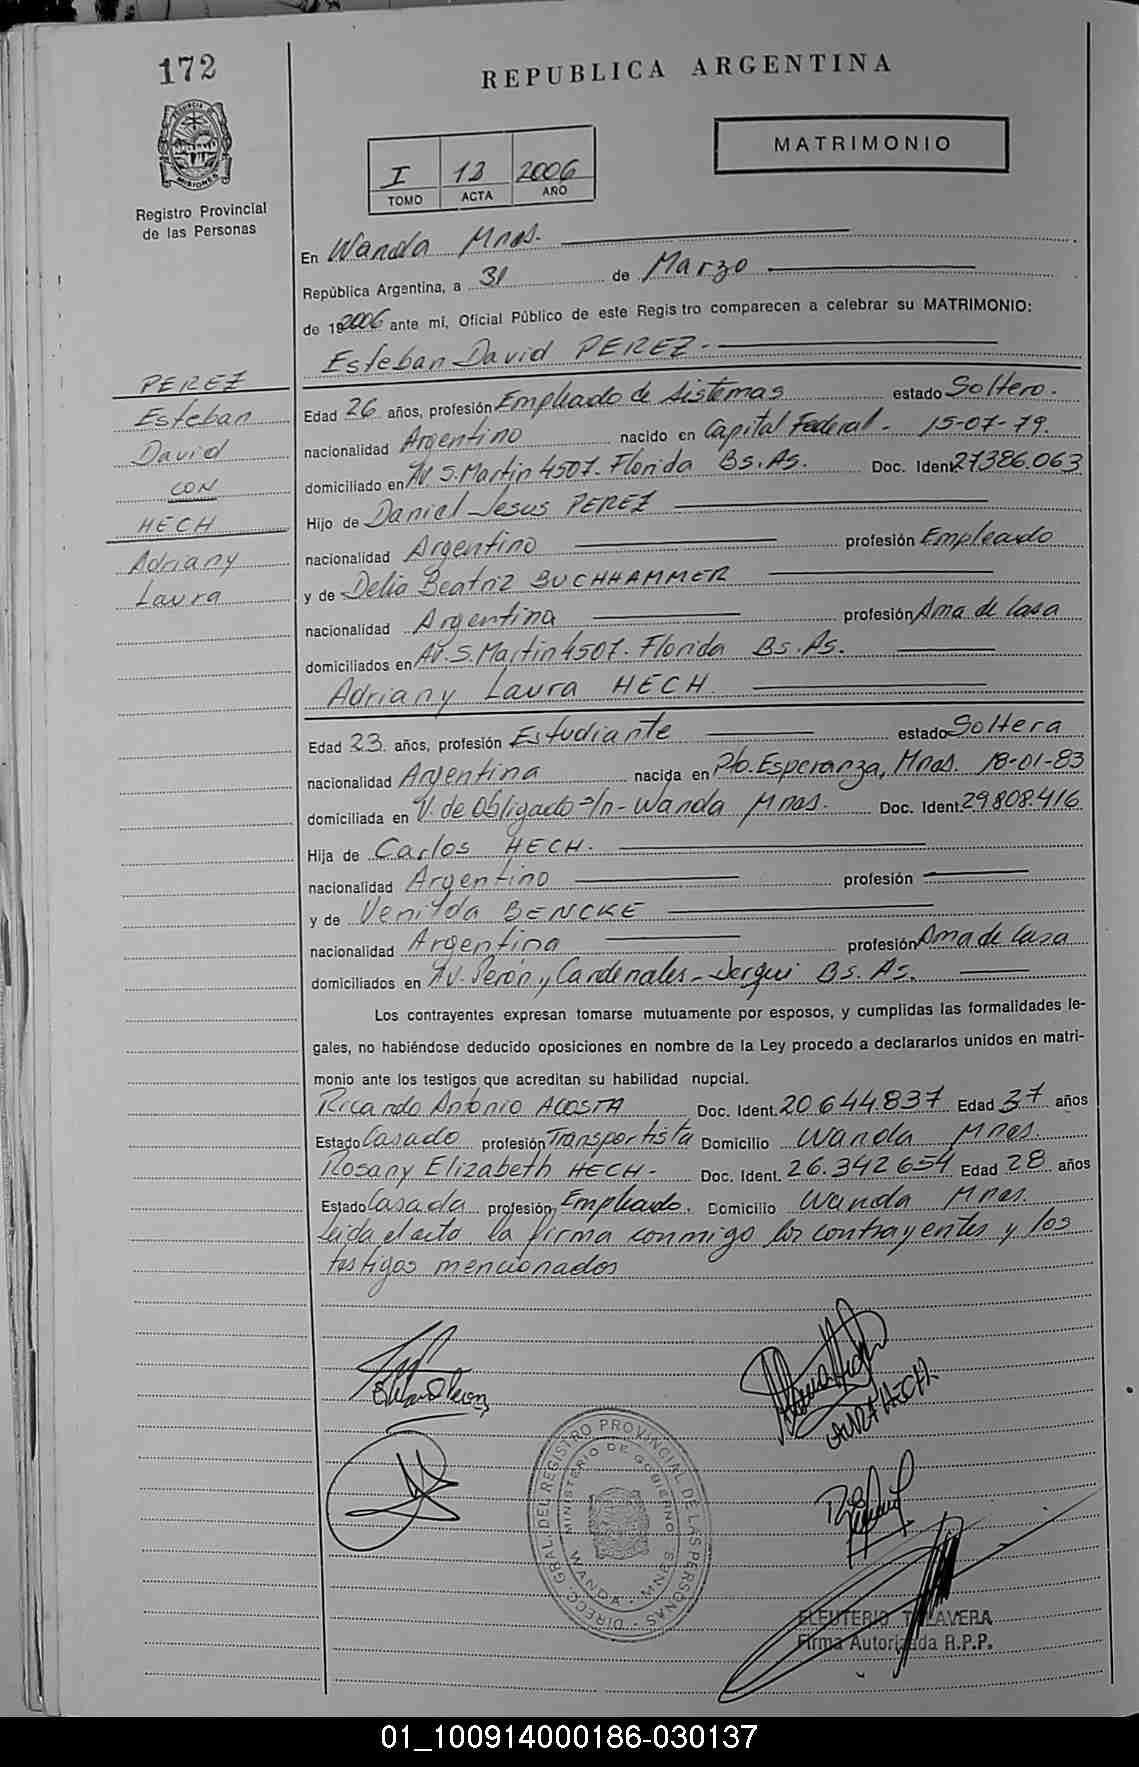 172
REPUBLICA ARGENTINA
PROVINCIA DE
MISIONES
Registro Provincial
de las Personas
MATRIMONIO
I 12 2006
TOMO ACTA AÑO
En Wanda Mnes.
República Argentina, a 31 de Marzo
de 192006 ante mí, Oficial Público de este Registro comparecen a celebrar su MATRIMONIO:
Esteban David PEREZ-
PEREZ
Esteban
David
CON
HECH
Adriany
Laura
Edad 26 años, profesión Empleado de Sistemas estado Soltero.
nacionalidad Argentino nacido en Capital Federal - 15-07-79.
domiciliado en Av. S. Martin 4507. Florida Bs. As. Doc. Ident. 27386.063
Hijo de Daniel Jesus PEREZ
nacionalidad Argentino profesión Empleado
y de Delia Beatriz BUCHHAMMER
nacionalidad Argentina profesión Ama de Casa
domiciliados en Av. S. Martin 4507. Florida Bs. As.
Adriany Laura HECH
Edad 23 años, profesión Estudiante estado Soltera
nacionalidad Argentina nacida en Pto. Esperanza, Mnes. 18-01-83
domiciliada en V. de Obligado s/n - Wanda Mnes. Doc. Ident. 29.808.416
Hija de Carlos HECH.
nacionalidad Argentino profesión
y de Venilda BENCKE
nacionalidad Argentina profesión Ama de Casa
domiciliados en Av. Perón y Cardenales - Bs. As.
Los contrayentes expresan tomarse mutuamente por esposos, y cumplidas las formalidades le-
gales, no habiéndose deducido oposiciones en nombre de la Ley procedo a declararlos unidos en matri-
monio ante los testigos que acreditan su habilidad nupcial.
Ricardo Antonio ACOSTA Doc. Ident. 20.644.837 Edad 37 años
Estado Casado profesión Transportista Domicilio Wanda Mnes.
Rosany Elizabeth HECH- Doc. Ident. 26.342.654 Edad 28 años
Estado Casada profesión Empleado. Domicilio Wanda Mnes.
Leida el acto la firma conmigo los contrayentes y los
testigos mencionados
LAURA HECH
DIRECC. GRAL. DEL REGISTRO PROVINCIAL DE LAS PERSONAS
MINISTERIO DE GOBIERNO
WANDA - MNES
ELEUTERIO TALAVERA
Firma Autorizada R.P.P.
01_100914000186-030137